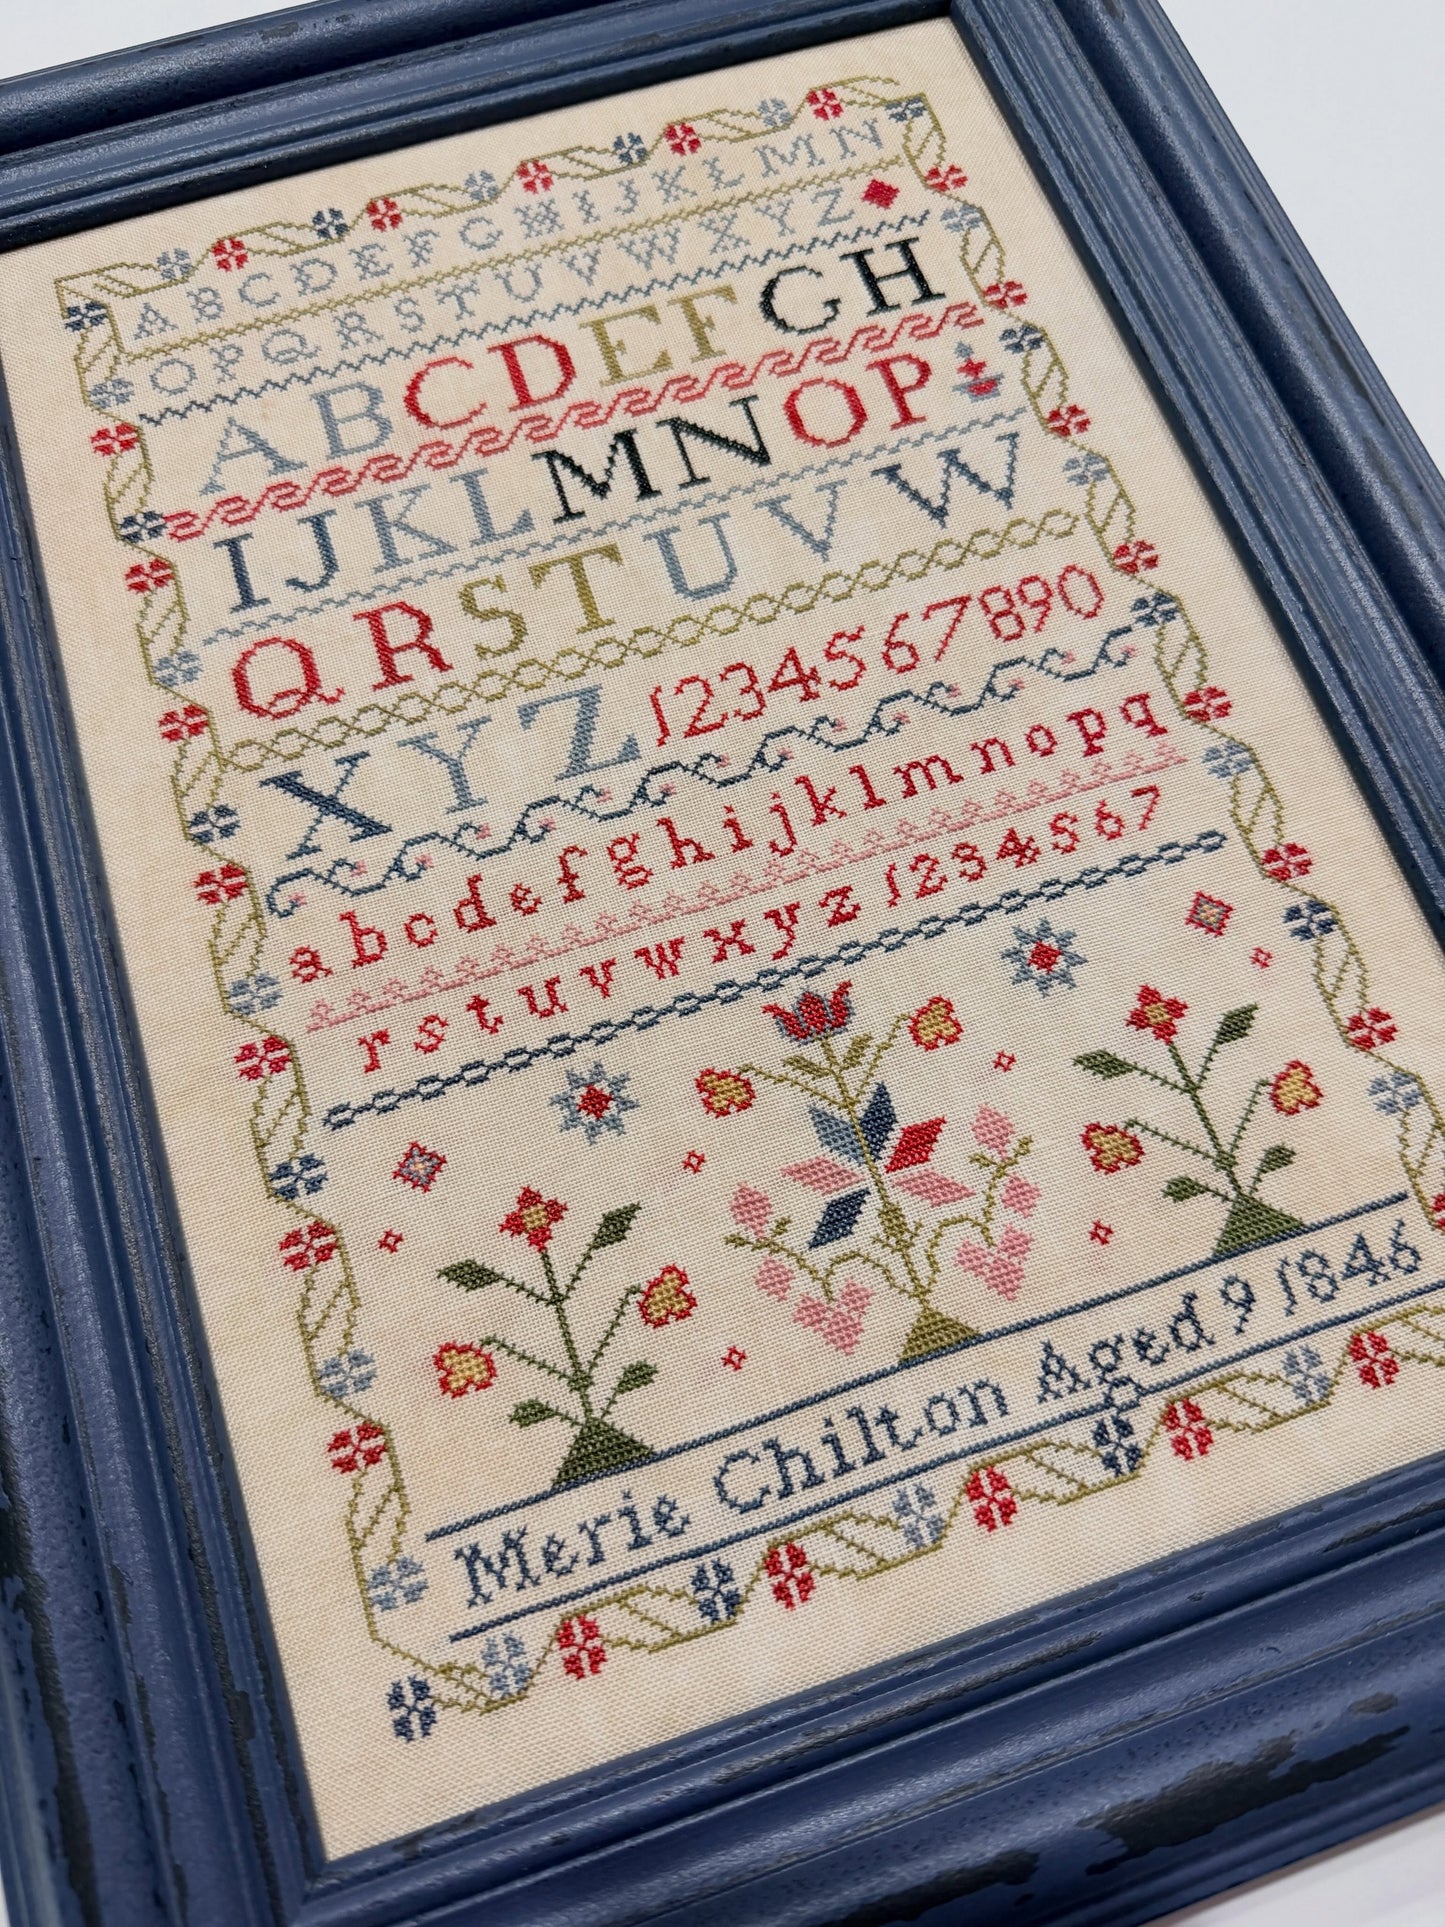 ABCDEFGHIJKLMN
OPQRSTUVWXYZ
ABCDEFGH
IJKLMNOP
QRSTUVW
XYZ 1234567890
abcdefghijklmnopq
rstuvwxyz 1234567
Merie Chilton Aged 9 1846